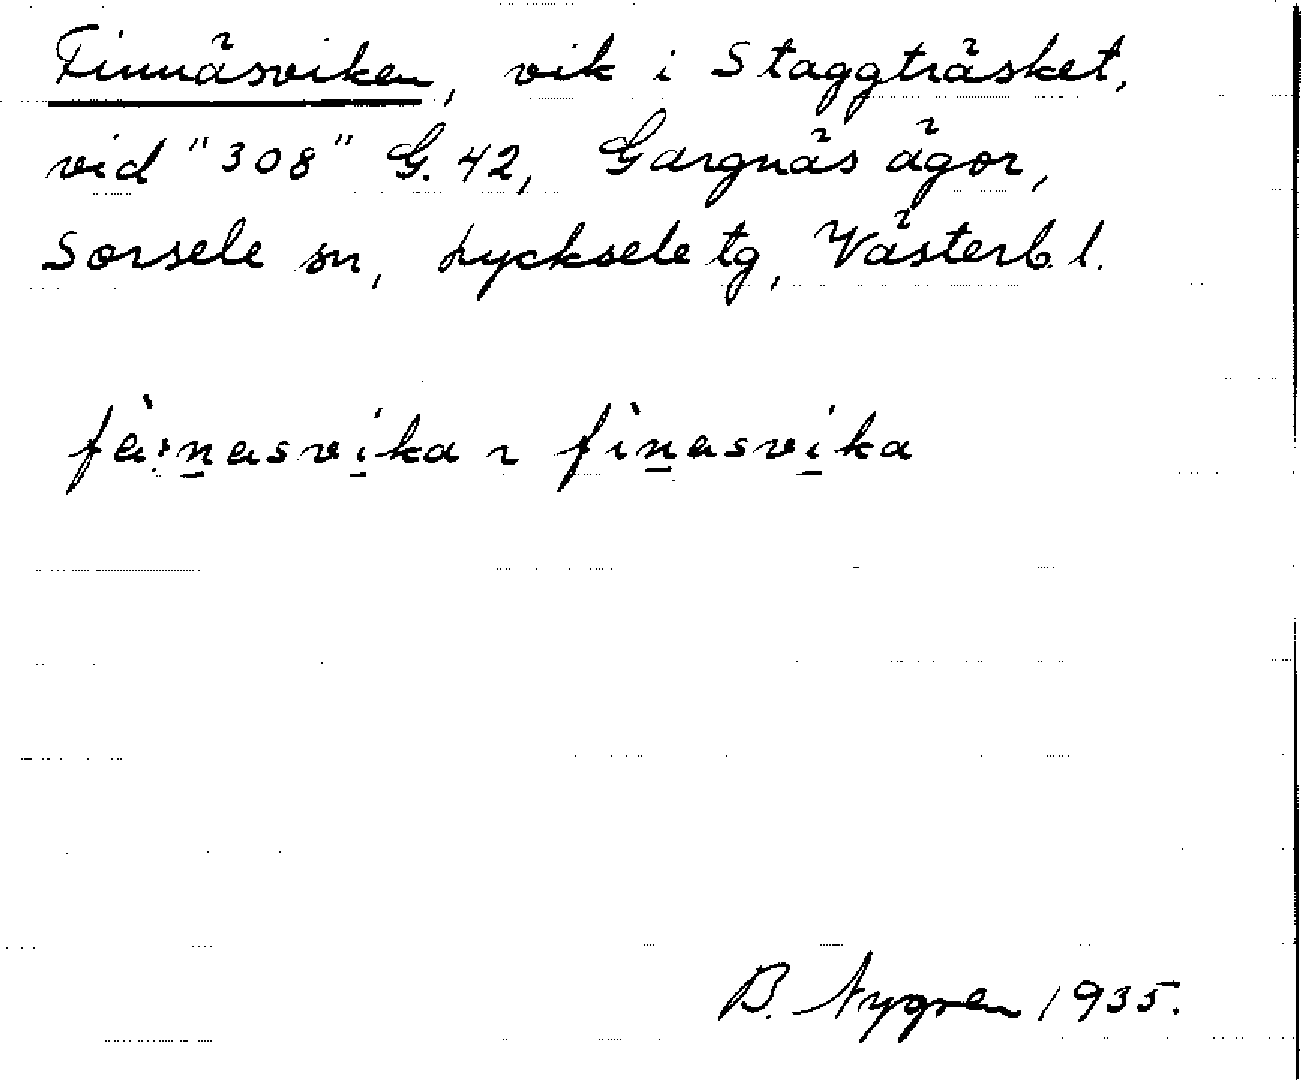 Finnäsviken, vik i Staggträsket,
vid "308" G. 42, Gargnäs ägor,
Sorsele sn, Lycksele tg, Västerb. l.
fìnasvíka
B. Nygren 1935.